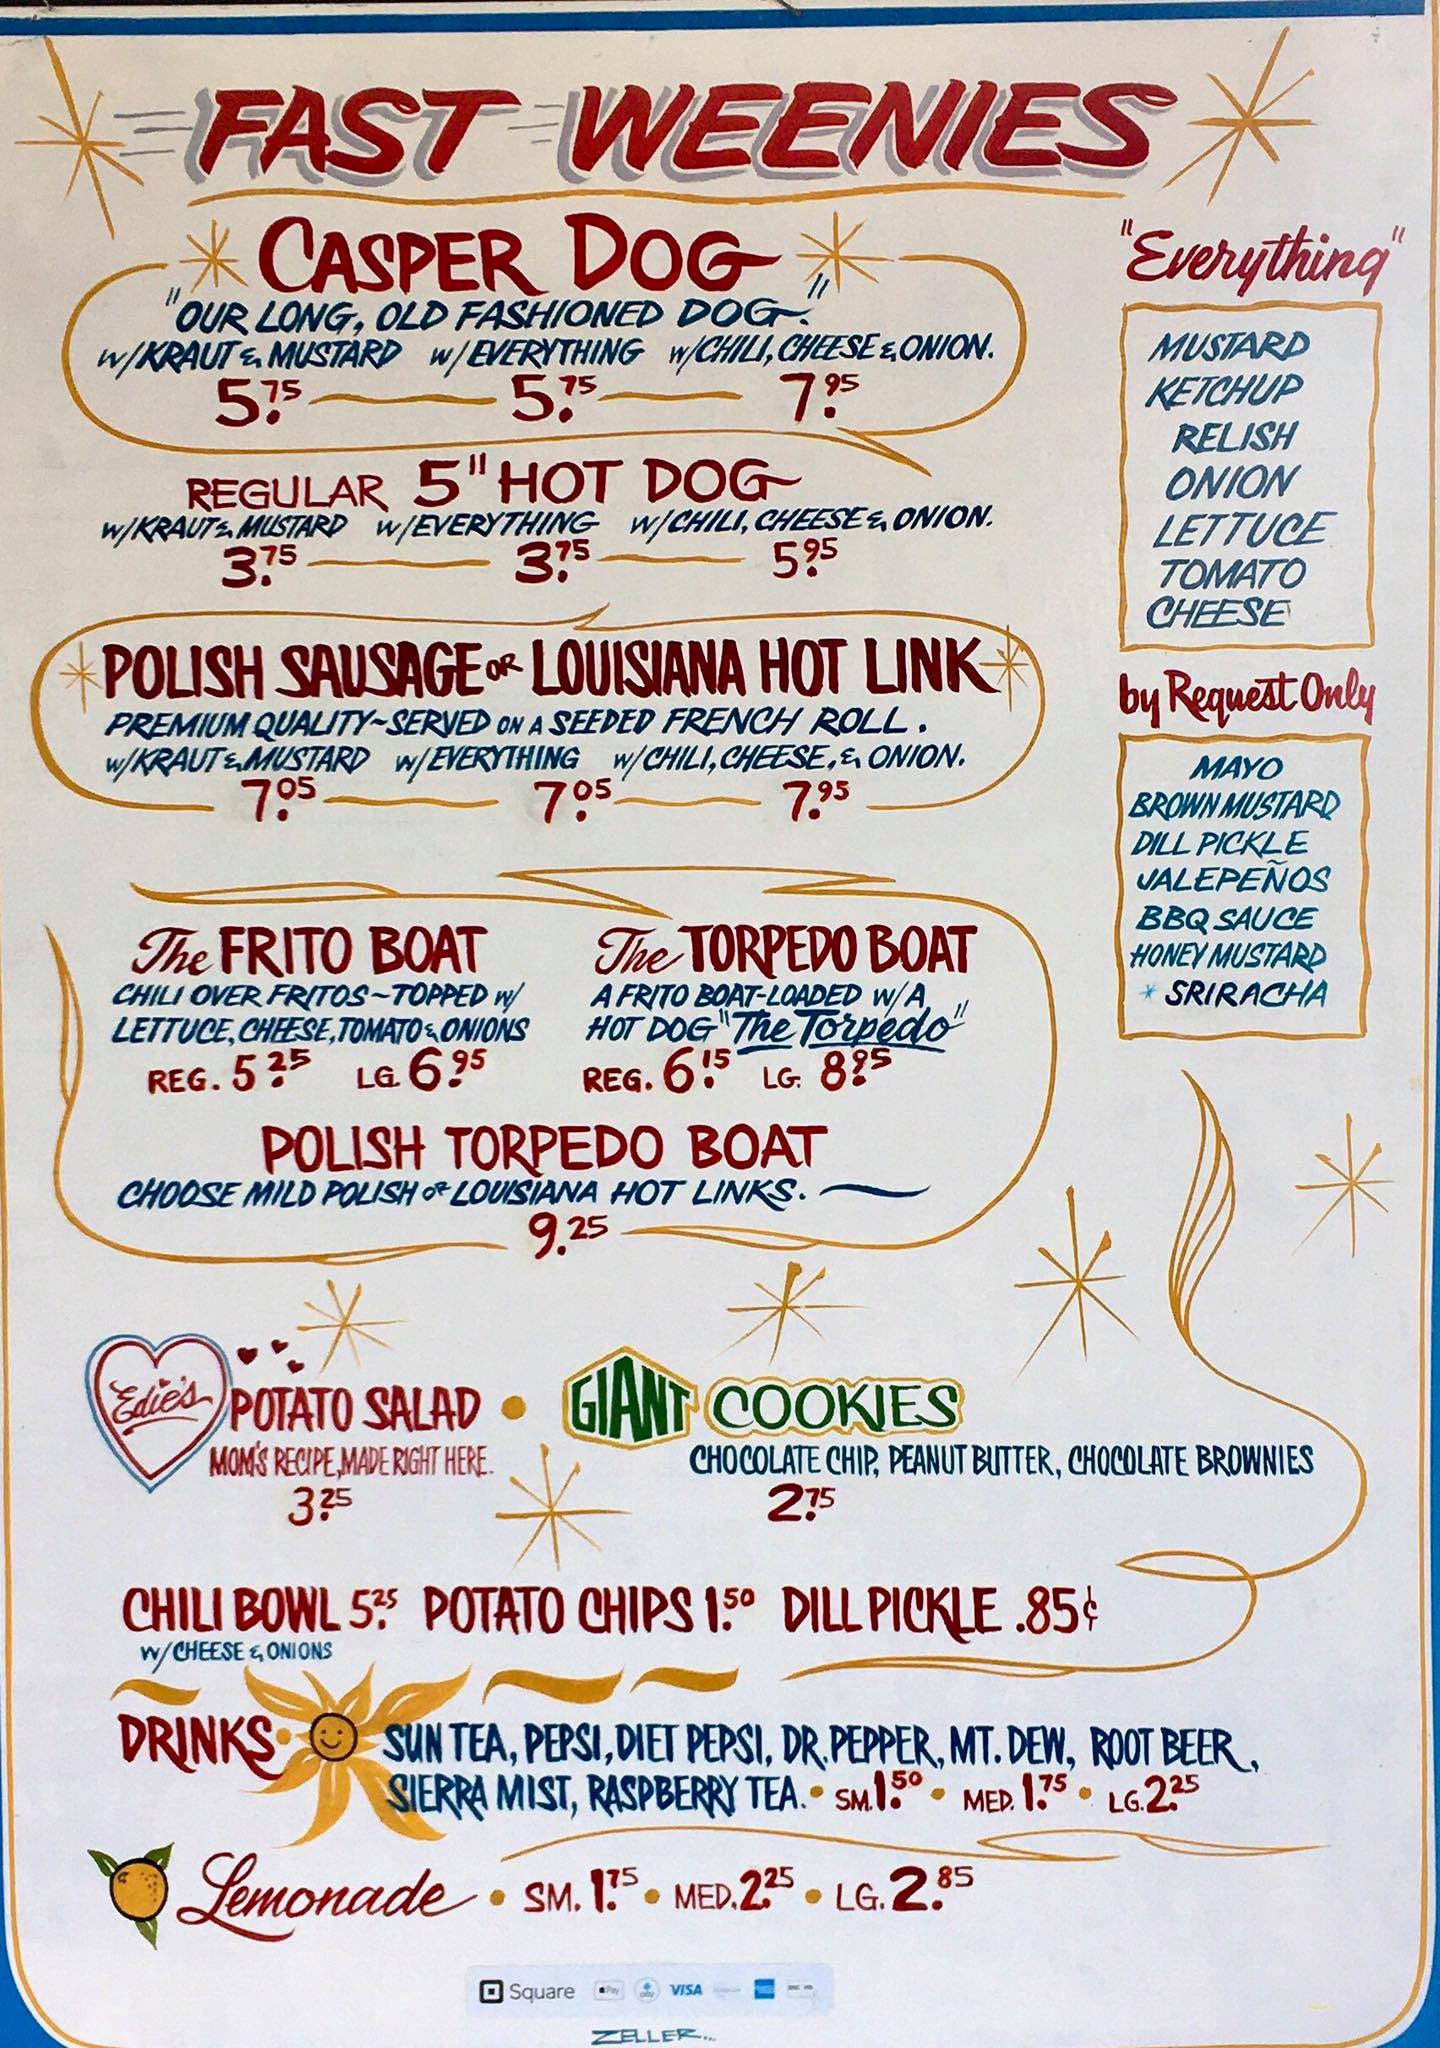 FAST WEENIES
CASPER DOG
"OUR LONG, OLD FASHIONED DOG."
W/KRAUT & MUSTARD W/EVERYTHING W/CHILI, CHEESE & ONION.
5.75 5.75 7.95
REGULAR 5" HOT DOG
W/KRAUT & MUSTARD W/EVERYTHING W/CHILI, CHEESE & ONION.
3.75 3.75 5.95
POLISH SAUSAGE OR LOUISIANA HOT LINK
PREMIUM QUALITY~SERVED ON A SEEDED FRENCH ROLL.
W/KRAUT & MUSTARD W/EVERYTHING W/CHILI, CHEESE, & ONION.
7.05 7.05 7.95
"Everything"
MUSTARD
KETCHUP
RELISH
ONION
LETTUCE
TOMATO
CHEESE
by Request Only
MAYO
BROWN MUSTARD
DILL PICKLE
JALEPEÑOS
BBQ SAUCE
HONEY MUSTARD
* SRIRACHA
The FRITO BOAT
CHILI OVER FRITOS~TOPPED W/
LETTUCE, CHEESE, TOMATO & ONIONS
REG. 5.25 LG. 6.95
The TORPEDO BOAT
A FRITO BOAT-LOADED W/A
HOT DOG "The Torpedo"
REG. 6.15 LG. 8.95
POLISH TORPEDO BOAT
CHOOSE MILD POLISH OR LOUISIANA HOT LINKS.
9.25
Edie's POTATO SALAD
MOM'S RECIPE, MADE RIGHT HERE.
3.25
GIANT COOKIES
CHOCOLATE CHIP, PEANUT BUTTER, CHOCOLATE BROWNIES
2.75
CHILI BOWL 5.25 POTATO CHIPS 1.50 DILL PICKLE .85¢
W/CHEESE & ONIONS
DRINKS SUN TEA, PEPSI, DIET PEPSI, DR. PEPPER, MT. DEW, ROOT BEER,
SIERRA MIST, RASPBERRY TEA. • SM. 1.50 • MED. 1.75 • LG. 2.25
Lemonade • SM. 1.75 • MED. 2.25 • LG. 2.85
Square Pay VISA
ZELLER...